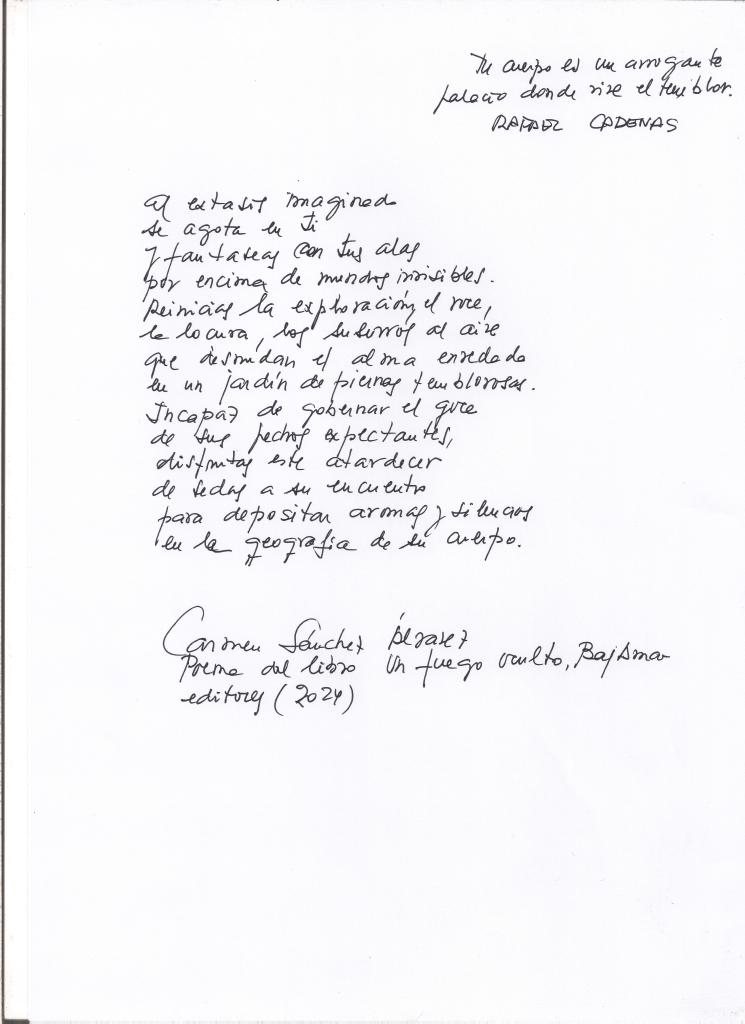 Tu cuerpo es un arrogante
palacio donde vive el temblor.
RAFAEL CADENAS
El extasis imaginado
se agota en ti
y fantaseas con tus alas
por encima de mundos invisibles.
Reinicias la exploración, el roce,
la locura, los susurros al aire
que desnudan el alma enredada
en un jardín de piernas temblorosas.
Incapaz de gobernar el goce
de sus pechos expectantes,
disfrutas este atardecer
de sedas a su encuentro
para depositar aromas y silencios
en la geografia de su cuerpo.
Carmen Sánchez Álvarez
Poema del libro Un fuego oculto, BajAmar
editores (2024)